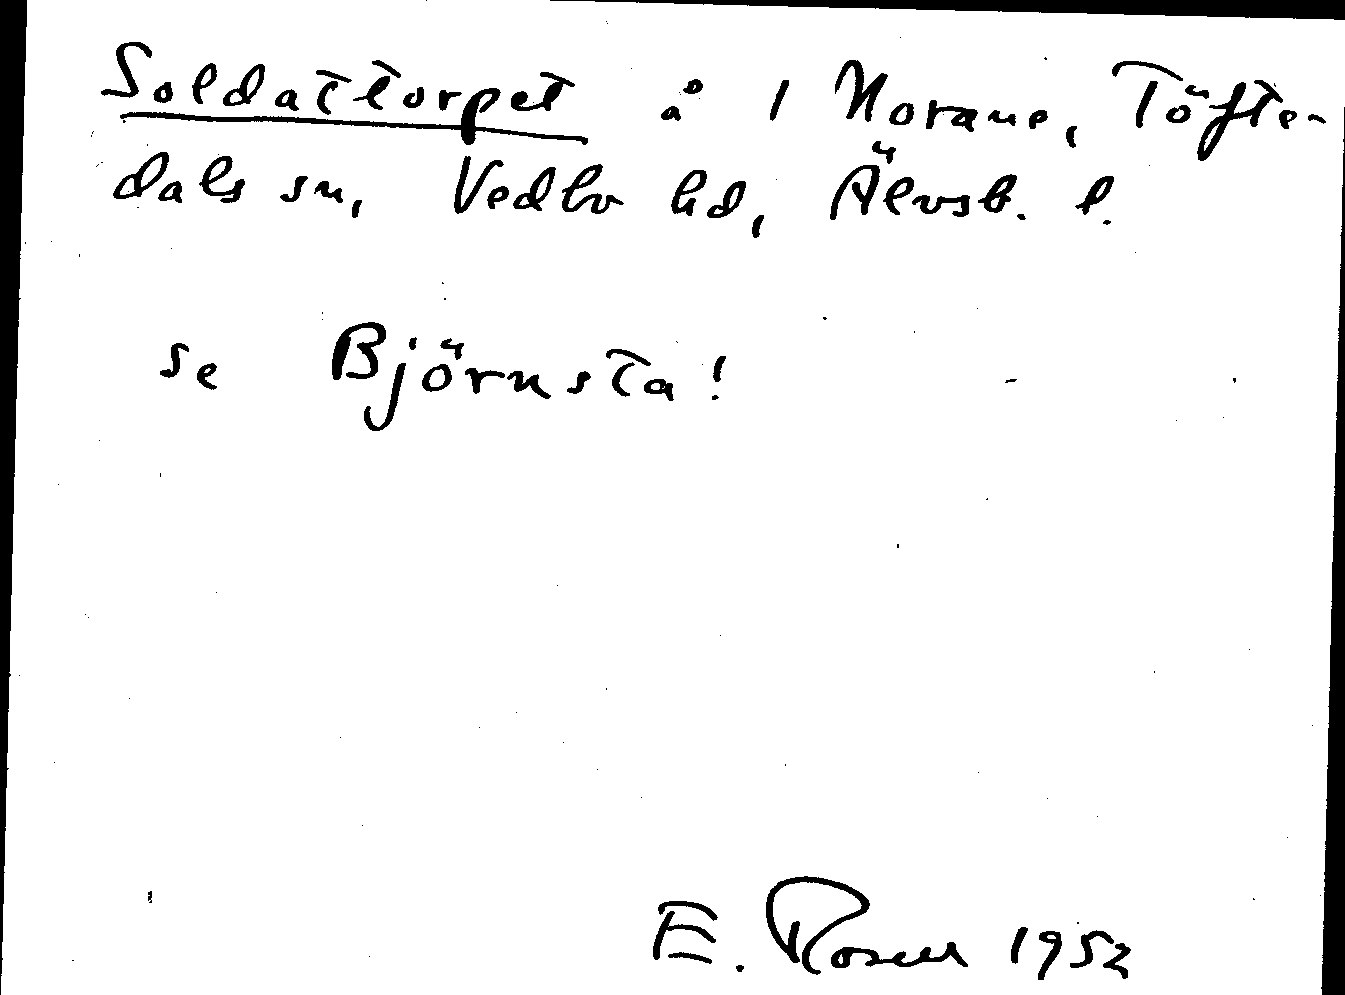 Soldattorpet å 1 Norane, Töfte-
dals sn, Vedbo hd, Älvsb. l.
se Björnsta!
E. Rosell 1952